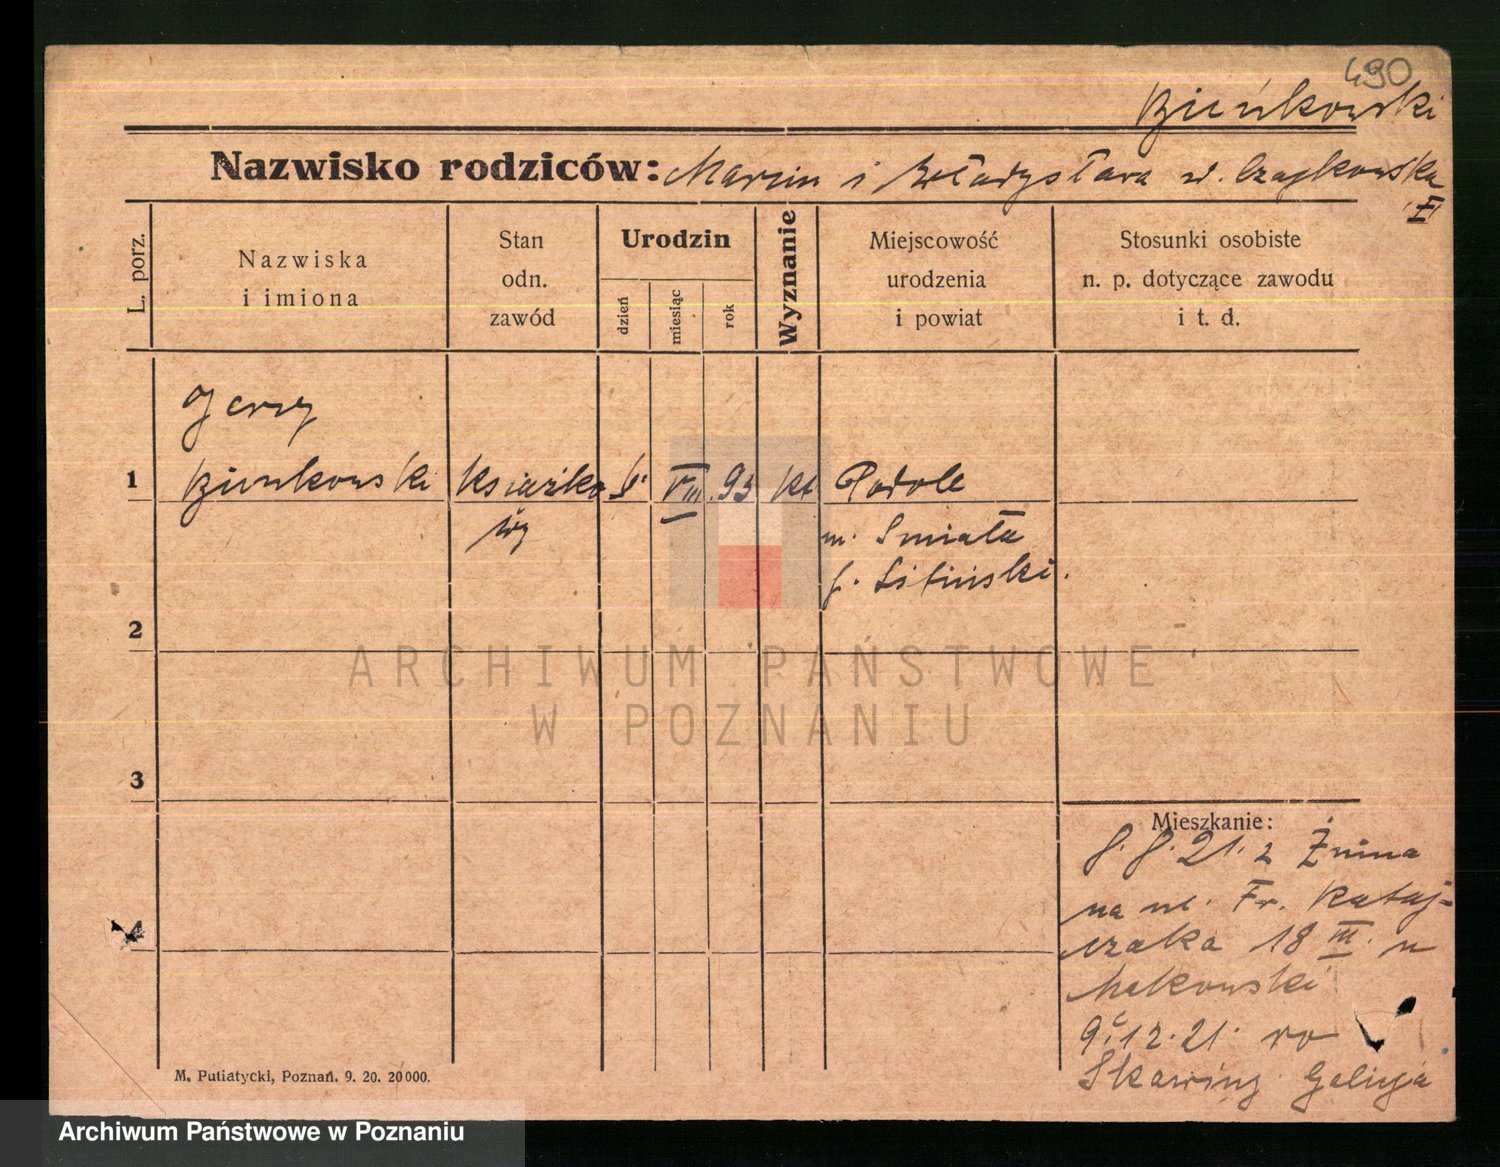 490
Bieńkowski
Nazwisko rodziców: Marcin i Władysława z. Czajkowska
L. porz.
Nazwiska
i imiona
Stan
odn.
zawód
Urodzin
dzień
miesiąc
rok
Wyznanie
Miejscowość
urodzenia
i powiat
Stosunki osobiste
n. p. dotyczące zawodu
i t. d.
Jerzy
1 Bienkowski książko VIII 93 kt Podole
wy
m. Smiała
p. Litiński.
2
ARCHIWUM PAŃSTWOWE
W POZNANIU
3
Mieszkanie:
8. 8. 21. z Żnina
na ul. Fr. Rataj-
4 czaka 18 III. u
Makowski
9. 12. 21. do
Skawiny Galicja
M. Putiatycki, Poznań. 9. 20. 20000.
Archiwum Państwowe w Poznaniu